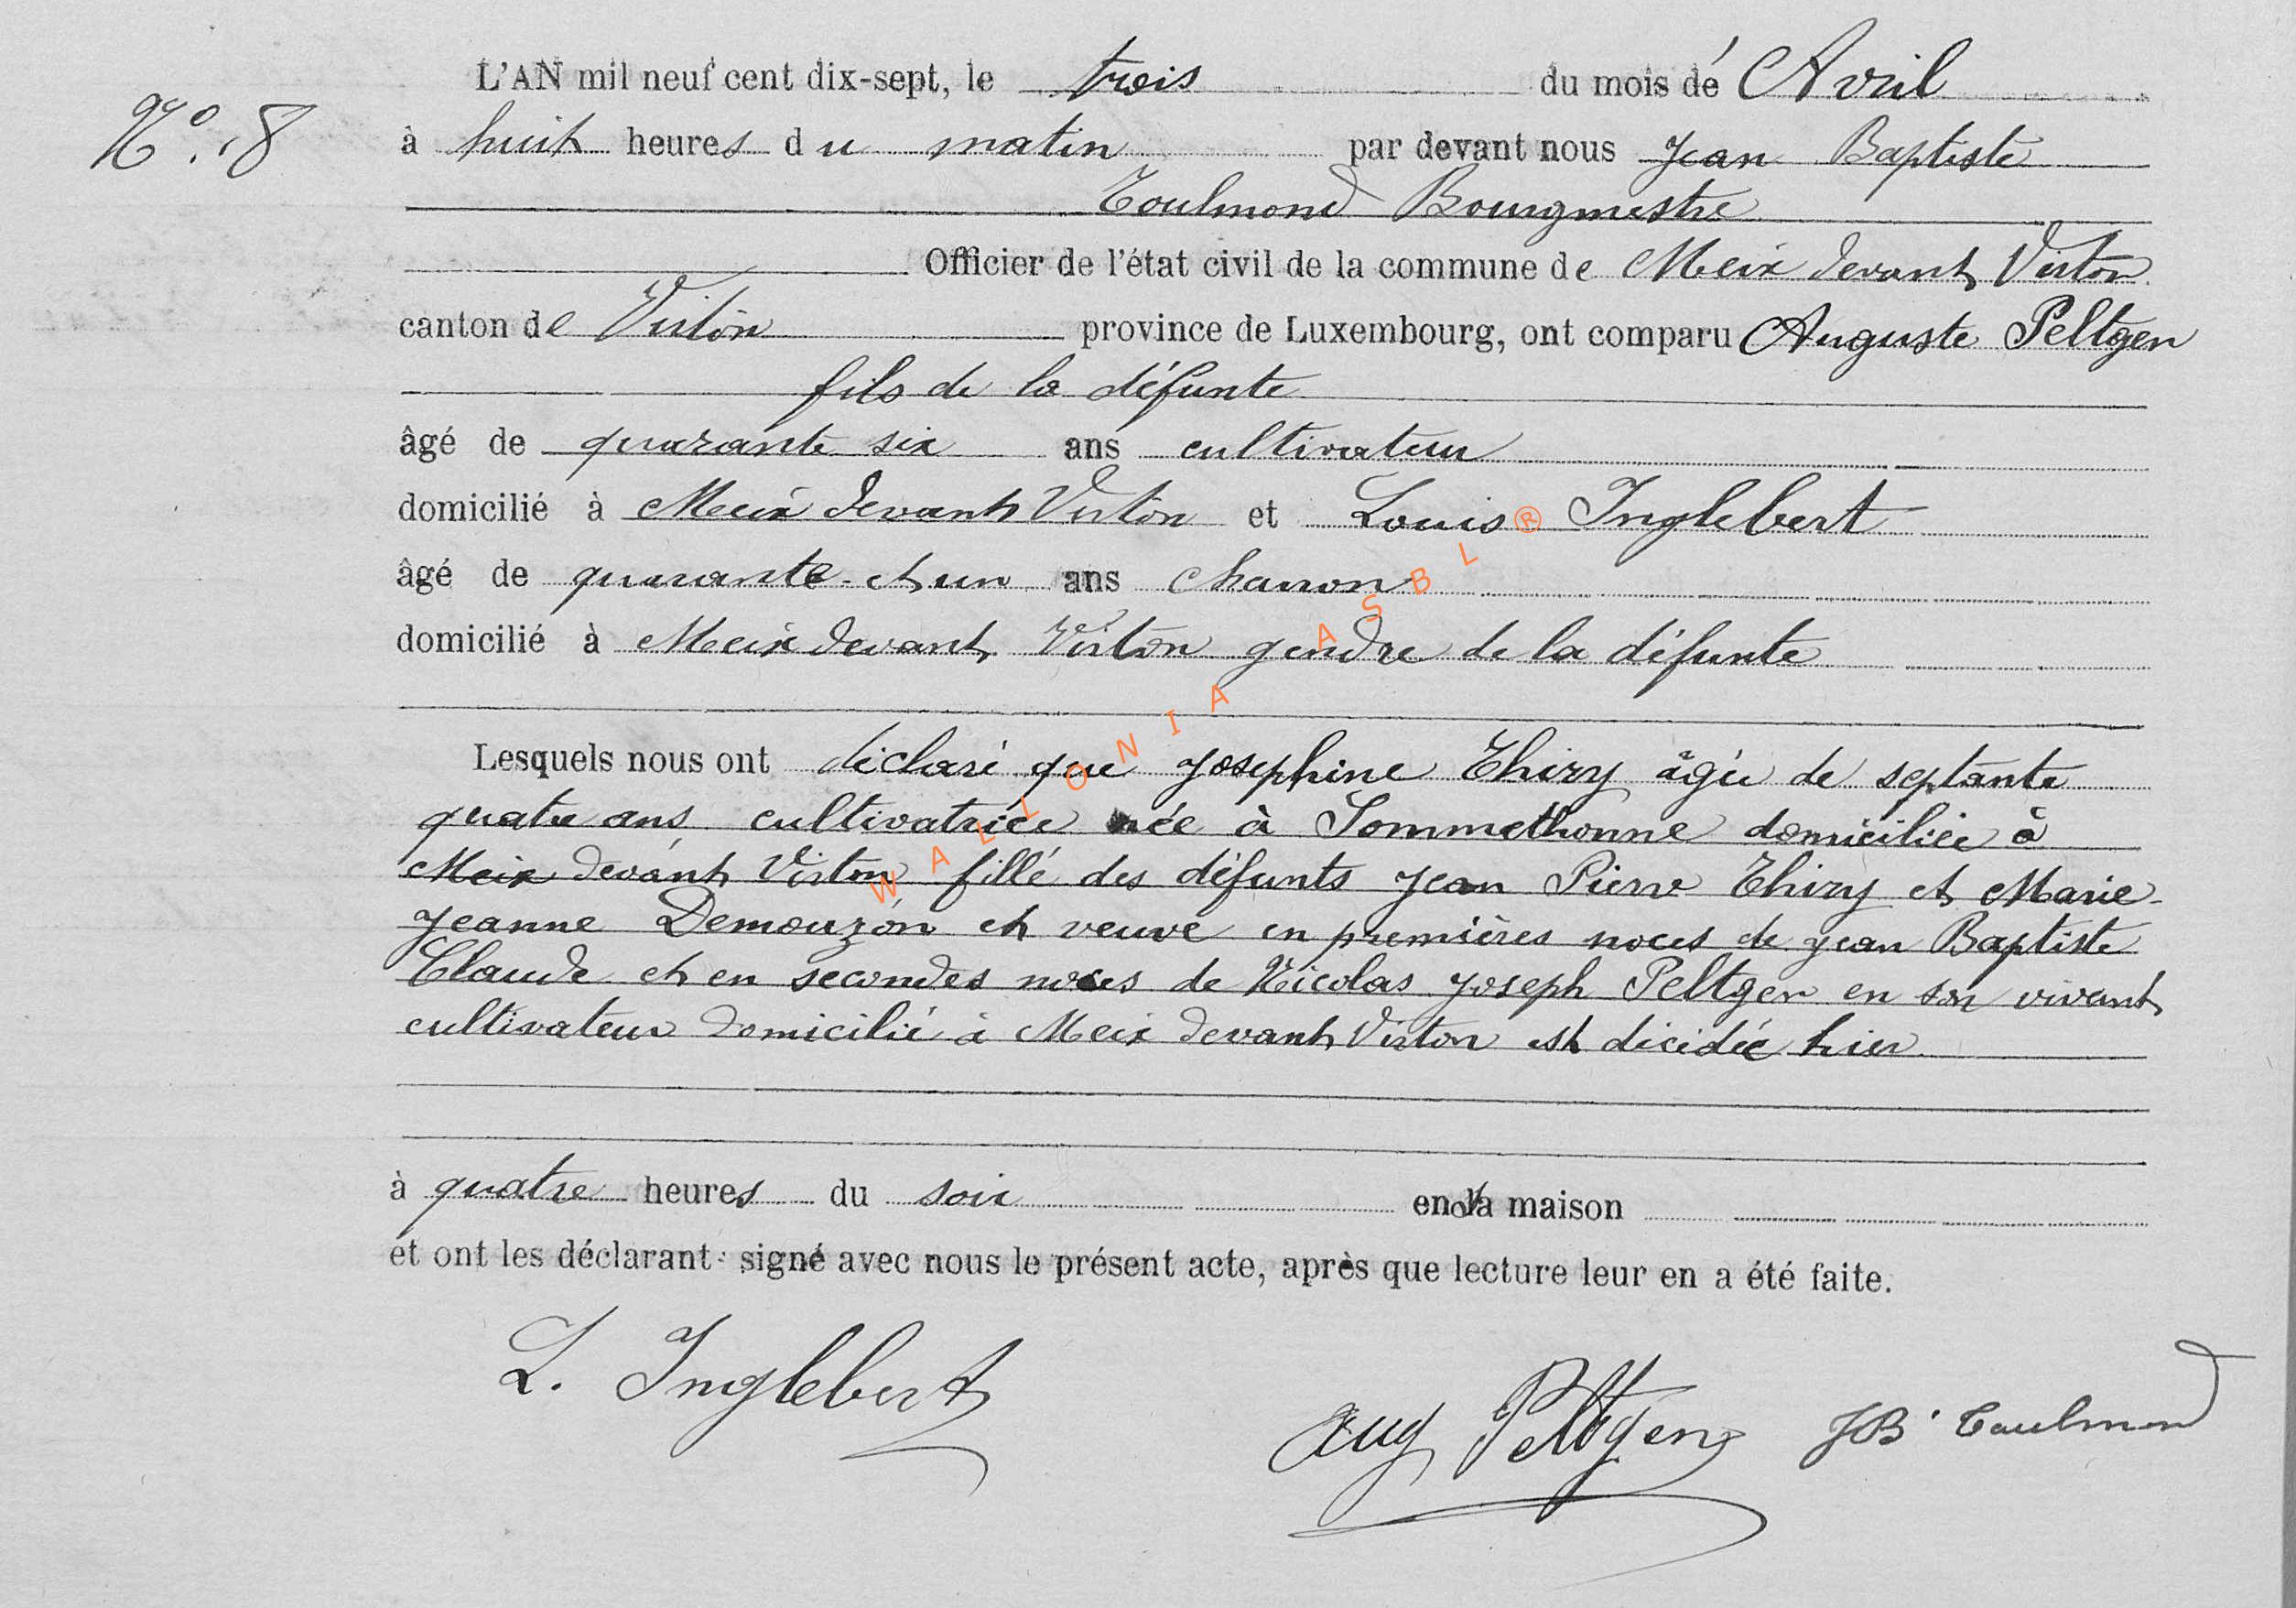 L'AN mil neuf cent dix-sept, le trois du mois de Avril
N°. 8 à huit heures du matin par devant nous Jean Baptiste
Toulmond Bourgmestre
Officier de l'état civil de la commune de Meix devant Virton
canton de Virton province de Luxembourg, ont comparu Auguste Peltgen
fils de la défunte
âgé de quarante six ans cultivateur
domicilié à Meix devant Virton et Louis Inglebert
âgé de quarante et un ans charron
domicilié à Meix devant Virton gendre de la défunte
Lesquels nous ont déclaré que Josephine Thiry âgée de septante
quatre ans cultivatrice née à Sommethonne domiciliée à
Meix devant Virton fille des défunts Jean Pierre Thiry et Marie
Jeanne Demouzon et veuve en premières noces de Jean Baptiste
Claude et en secondes noces de Nicolas Joseph Peltgen en son vivant
cultivateur domicilié à Meix devant Virton est décédée hier
à quatre heures du soir en sa maison
et ont les déclarant signé avec nous le présent acte, après que lecture leur en a été faite.
L. Inglebert
Aug Peltgen JB Toulmond
WALLONIA ASBL ®